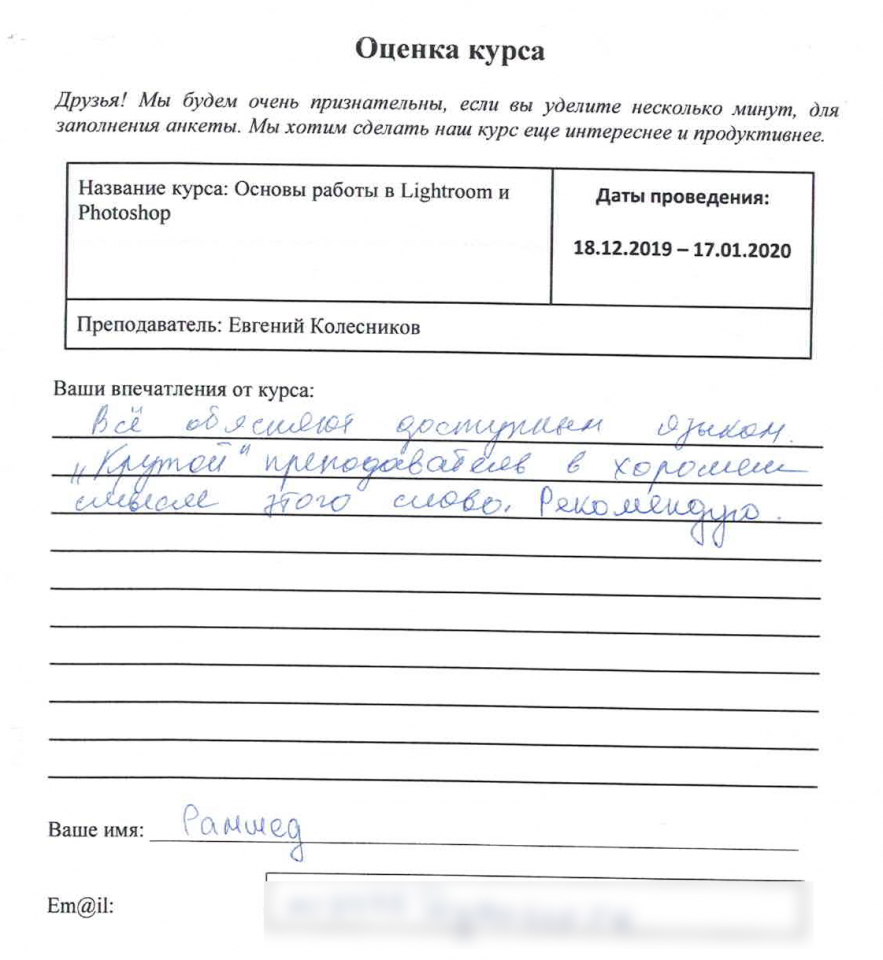 Оценка курса
Друзья! Мы будем очень признательны, если вы уделите несколько минут, для
заполнения анкеты. Мы хотим сделать наш курс еще интереснее и продуктивнее.
Название курса: Основы работы в Lightroom и
Photoshop
Даты проведения:
18.12.2019 – 17.01.2020
Преподаватель: Евгений Колесников
Ваши впечатления от курса:
Всё объясняют доступным языком.
„Крутой“ преподаватель в хорошем
смысле этого слово. Рекомендую.
Ваше имя: Рамшед
Em@il: